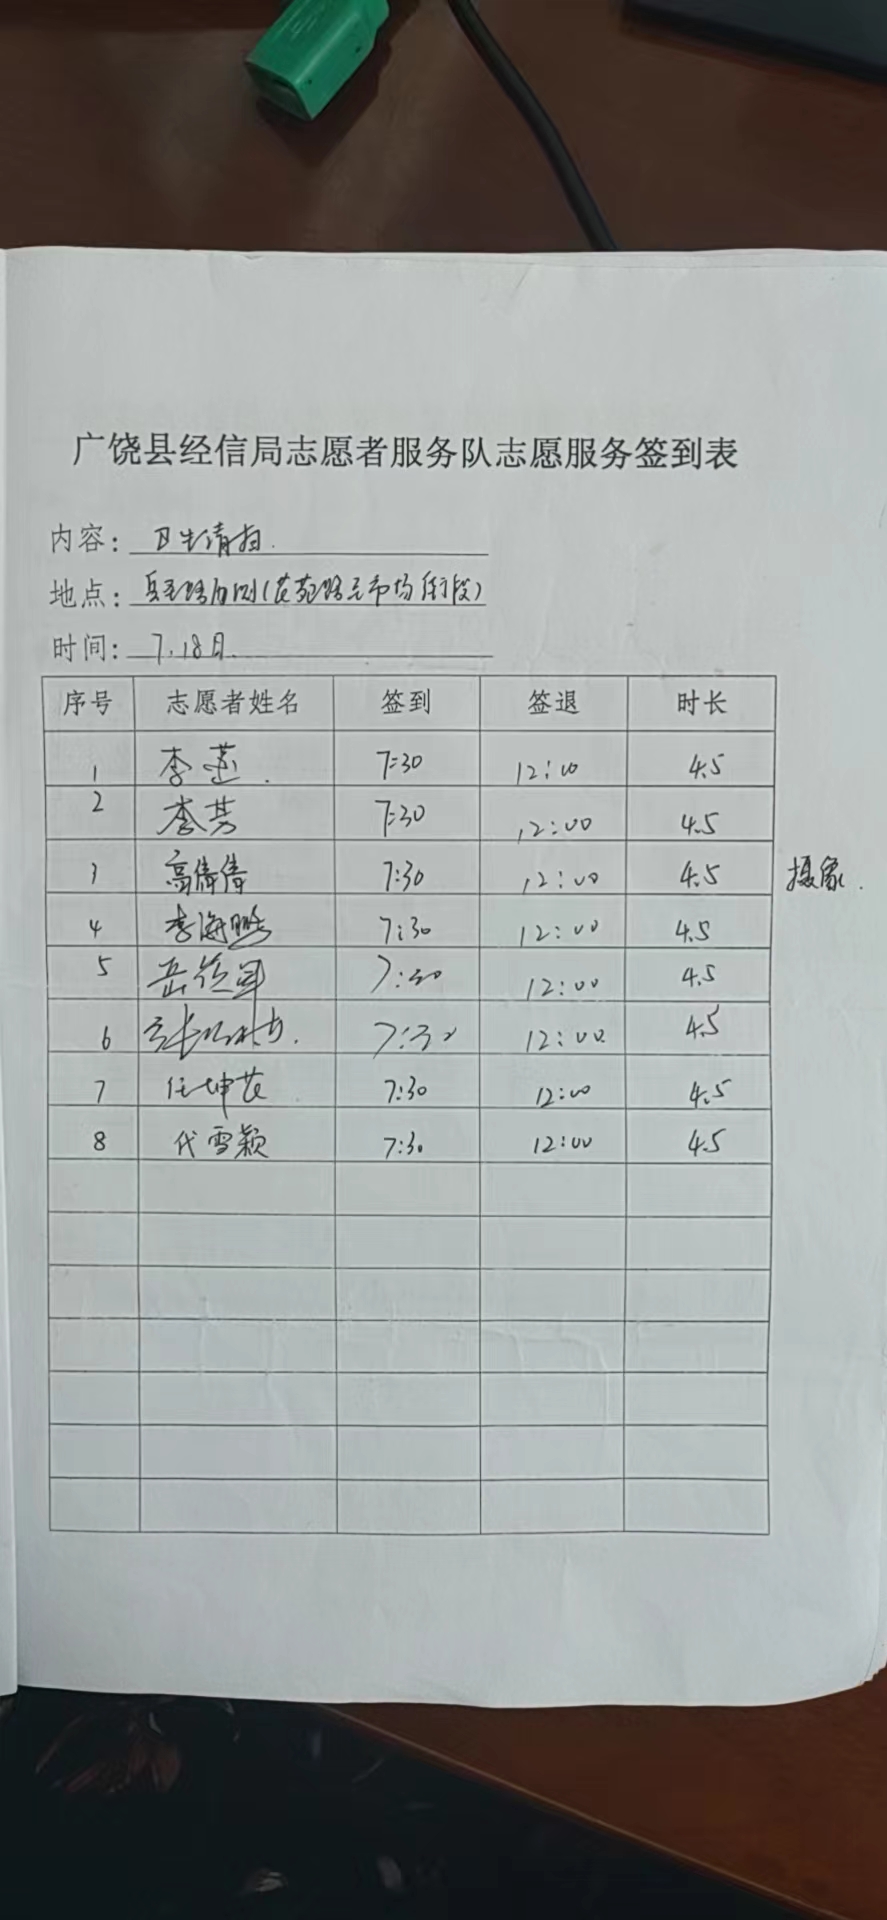 广饶县经信局志愿者服务队志愿服务签到表
内容: 卫生清扫.
地点: 市场街段)
时间: 7.18日.
序号 志愿者姓名 签到 签退 时长
1 李莲. 7:30 12:00 4.5
2 李芳 7:30 12:00 4.5
3 高倩倩 7:30 12:00 4.5 摄象.
4 李海鹏 7:30 12:00 4.5
5 7:30 12:00 4.5
6 7:30 12:00 4.5
7 任坤花 7:30 12:00 4.5
8 代雪颖 7:30 12:00 4.5